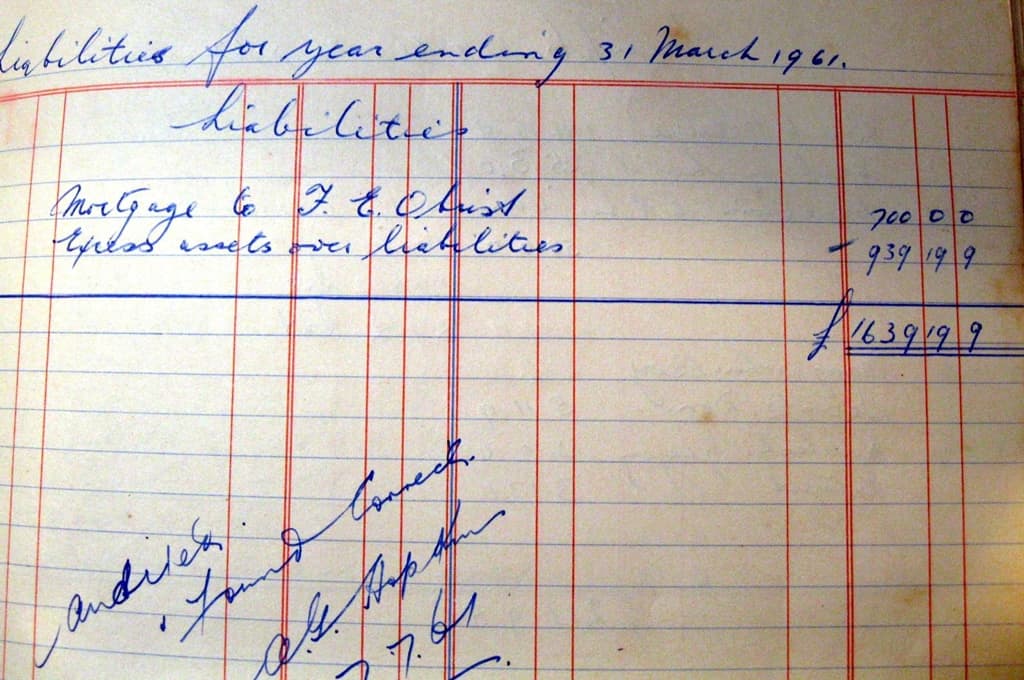 Liabilities for year ending 31 March 1961.
Liabilities
Mortgage to F. E. Obrist 700 0 0
Excess assets over liabilities 939 19 9
£ 1639 19 9
Audited &
found Correct.
7.61